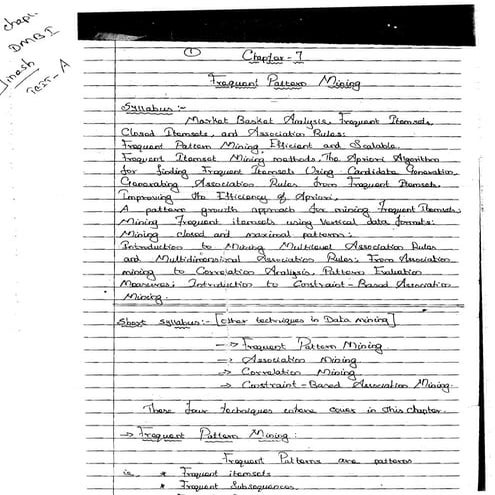 Chapt.
DMBI
TE IT-A
①
Chapter - 7
Frequent Pattern Mining
Syllabus :-
Market Basket Analysis, Frequent Itemsets,
Closed Itemsets, and Association Rules:
Frequent Pattern Mining, Efficient and Scalable
Frequent Itemset Mining methods, The Apriori Algorithm
for finding Frequent Itemsets Using Candidate Generation,
Generating Association Rules from Frequent Itemsets,
Improving the Efficiency of Apriori,
A pattern growth approach for mining Frequent Itemsets;
Mining Frequent itemsets using vertical data formats:
Mining closed and maximal patterns:
Introduction to Mining Multilevel Association Rules
and Multidimensional Association Rules; From Association
mining to Correlation Analysis, Pattern Evaluation
Measures; Introduction to Constraint-Based Association
Mining.
Short syllabus:- [other techniques in Data mining]
-> Frequent Pattern Mining
-> Association Mining.
-> Correlation Mining.
-> Constraint-Based Association Mining.
These four techniques cover in this chapter.
-> Frequent Pattern Mining:
Frequent Patterns are patterns
is * Frequent itemsets
* Frequent Subsequences